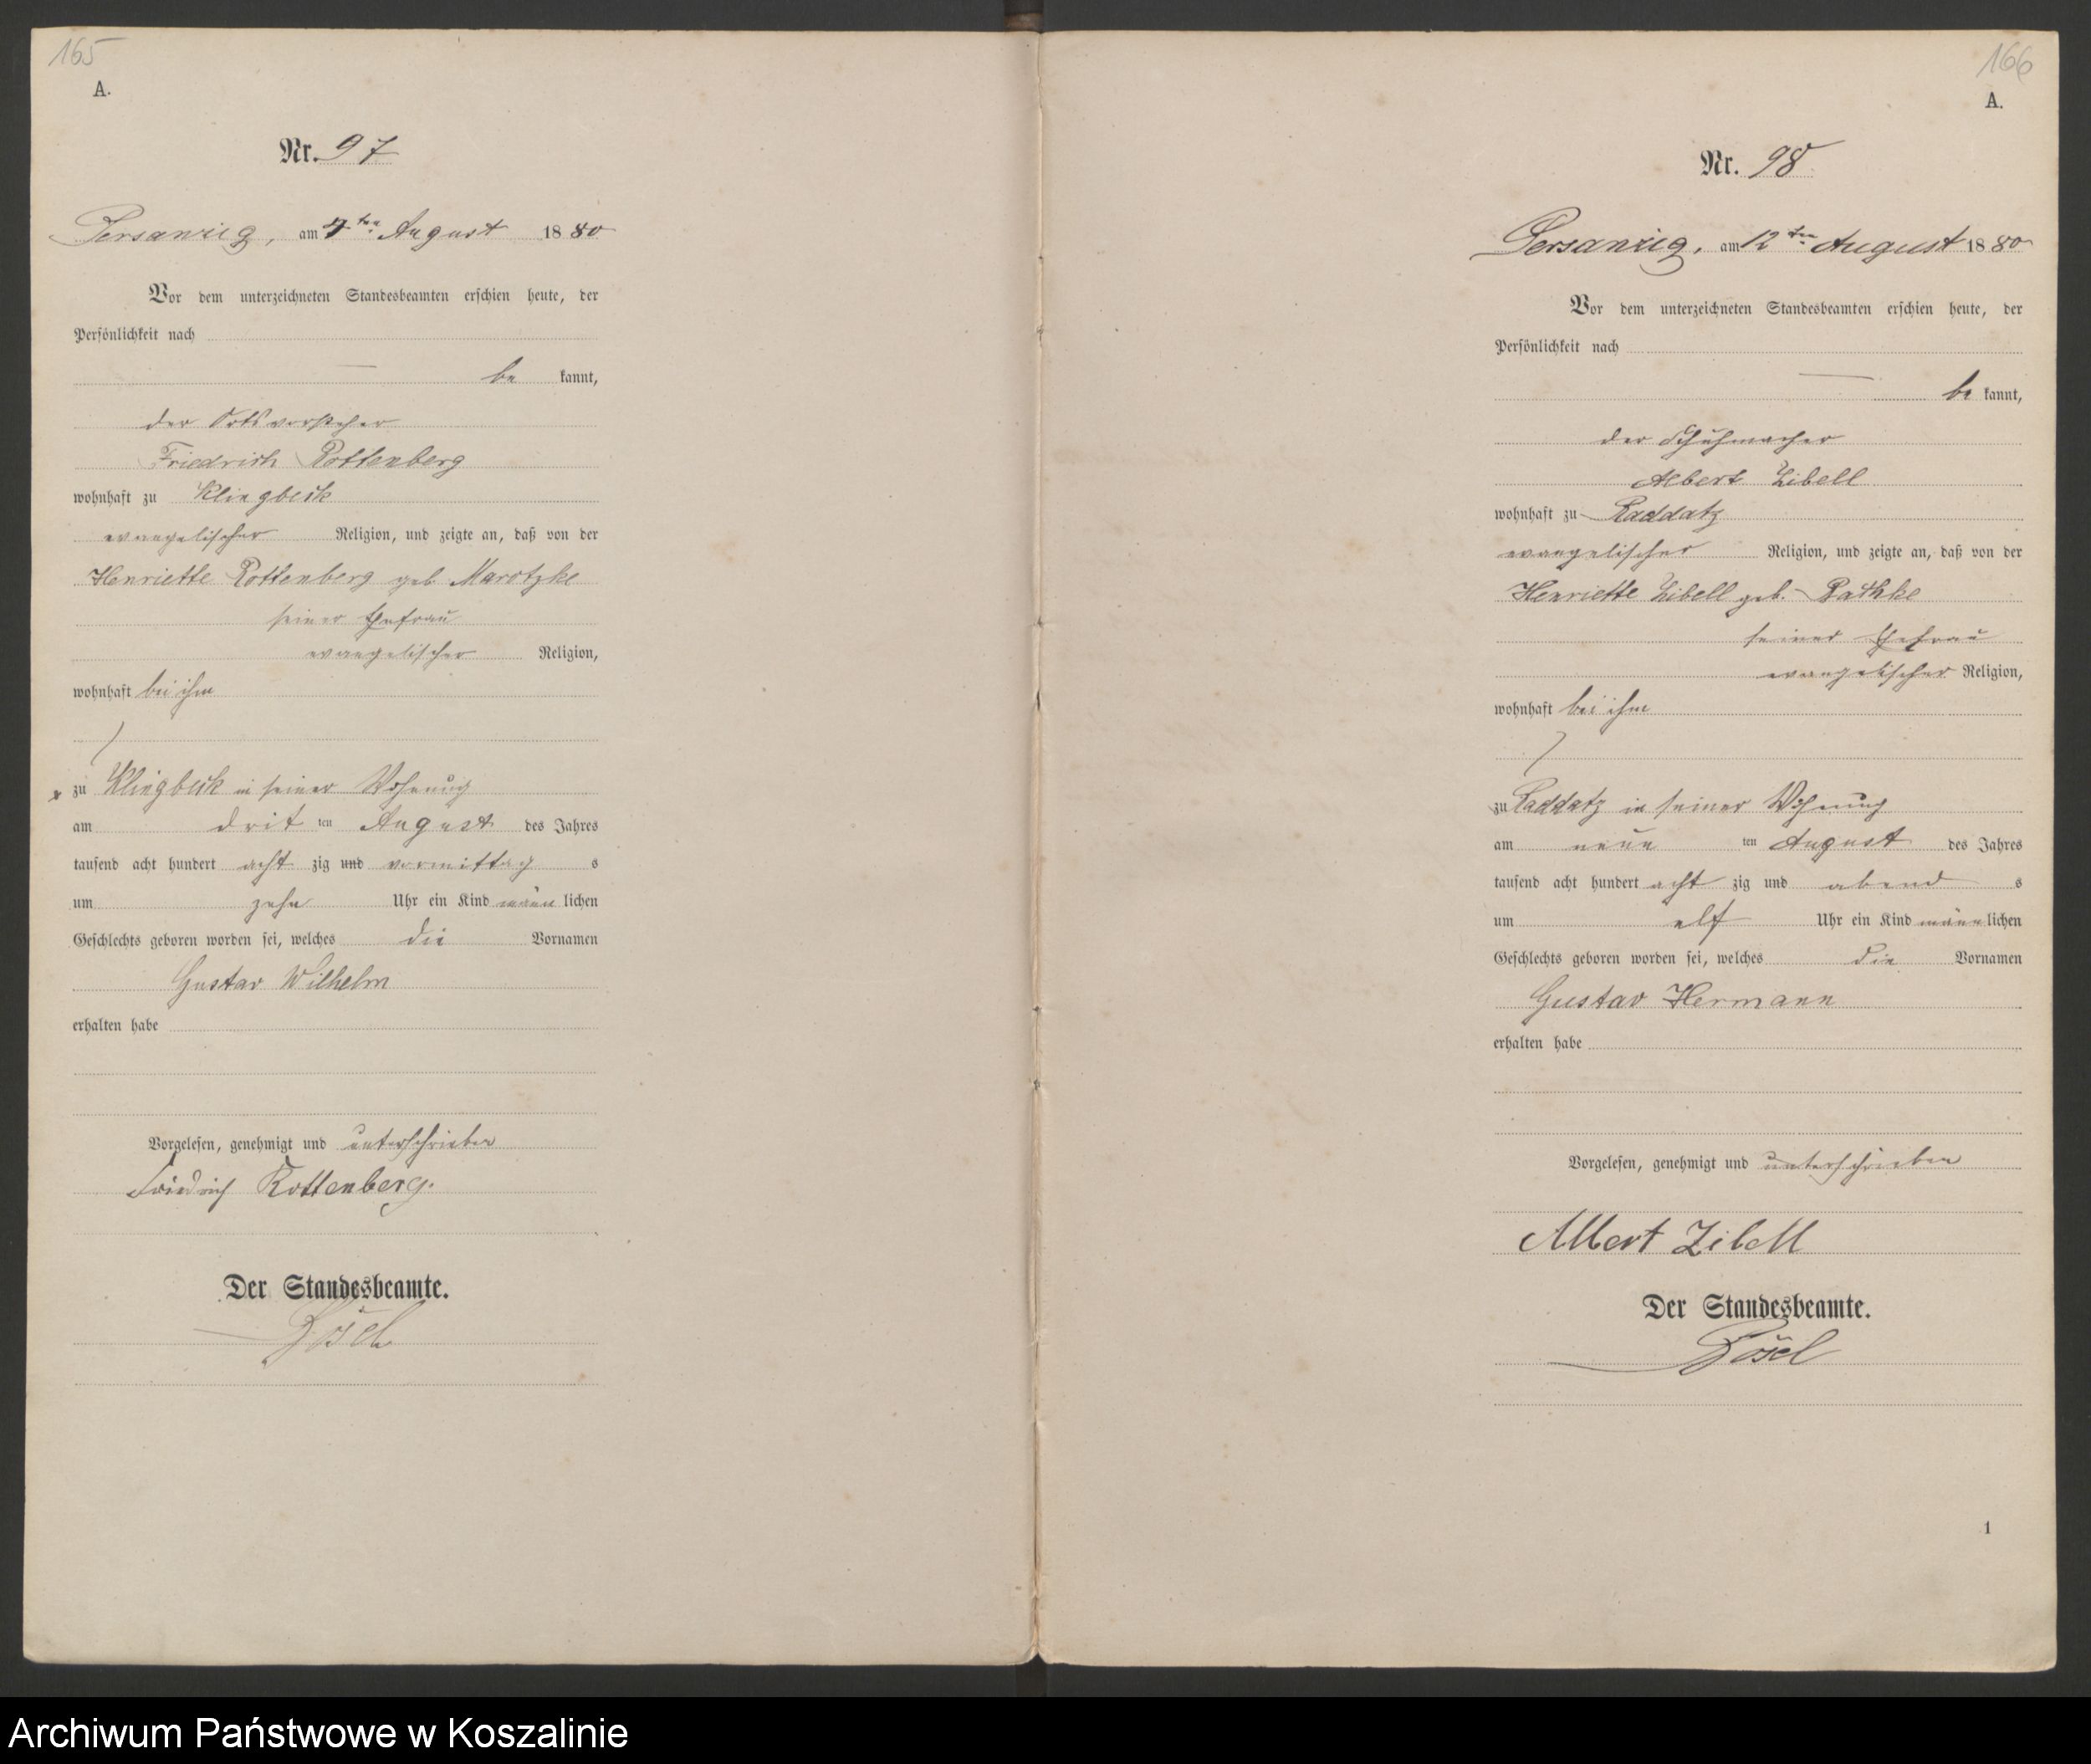 165
A.
Nr. 97
Persanzig, am 7ten August 1880
Vor dem unterzeichneten Standesbeamten erschien heute, der
Persönlichkeit nach
be kannt,
der Ortsvorsteher
Friedrich Rottenberg
wohnhaft zu Klingbeck
evangelischer Religion, und zeigte an, daß von der
Henriette Rottenberg geb Marotzke
seiner Ehefrau
evangelischer Religion,
wohnhaft bei ihm
zu Klingbeck in seiner Wohnung
am drit ten August des Jahres
tausend acht hundert acht zig und vormittag s
um zehn Uhr ein Kind männ lichen
Geschlechts geboren worden sei, welches die Vornamen
Gustav Wilhelm
erhalten habe
Vorgelesen, genehmigt und unterschrieben
Friedrich Rottenberg.
Der Standesbeamte.
166
A.
Nr. 98
Persanzig, am 12ten August 1880
Vor dem unterzeichneten Standesbeamten erschien heute, der
Persönlichkeit nach
be kannt,
der Schuhmacher
Albert Zibell
wohnhaft zu Raddatz
evangelischer Religion, und zeigte an, daß von der
Henriette Zibell geb. Rathke
seiner Ehefrau
evangelischer Religion,
wohnhaft bei ihm
zu Raddatz in seiner Wohnung
am neun ten August des Jahres
tausend acht hundert acht zig und abend s
um elf Uhr ein Kind männ lichen
Geschlechts geboren worden sei, welches die Vornamen
Gustav Hermann
erhalten habe
Vorgelesen, genehmigt und unterschrieben
Albert Zibell
Der Standesbeamte.
1
Archiwum Państwowe w Koszalinie